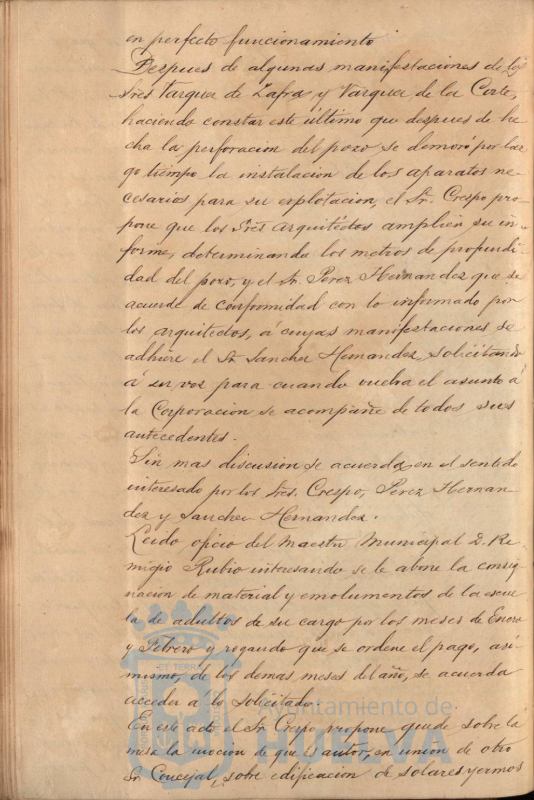 en perfecto funcionamiento
Despues de algunas manifestaciones de los
Sres Vazquez de Zafra y Vazquez de la Corte,
haciendo constar este último que despues de he
cha la perforacion del pozo se demoró por lar
go tiempo la instalacion de los aparatos ne-
cesarios para su explotacion, el Sr. Crespo pro-
pone que los Sres Arquitectos amplien su in-
forme, determinando los metros de profundi-
dad del pozo, y el Sr. Perez Hernandez que se
acuerde de conformidad con lo informado por
los arquitectos, á cuyas manifestaciones se
adhiere el Sr Sanchez Hernandez, solicitando
á su vez para cuando vuelva el asunto á
la Corporacion se acompañe de todos sus
antecedentes.
Sin mas discusion se acuerda en el sentido
interesado por los Sres. Crespo, Perez Hernan-
dez y Sanchez Hernandez.
Leido oficio del Maestro Municipal D. Re-
migio Rubio interesando se le abone la consig
nacion de material y emolumentos de la escue
la de adultos de su cargo por los meses de Enero
y Febrero y rogando que se ordene el pago, asi-
mismo, de los demas meses del año, se acuerda
acceder á lo solicitado.
En este acto el Sr Crespo propone quede sobre la
mesa la mocion de que es autor, en union de otro
Sr Concejal, sobre edificacion de solares yermos
Ayuntamiento de
HUELVA